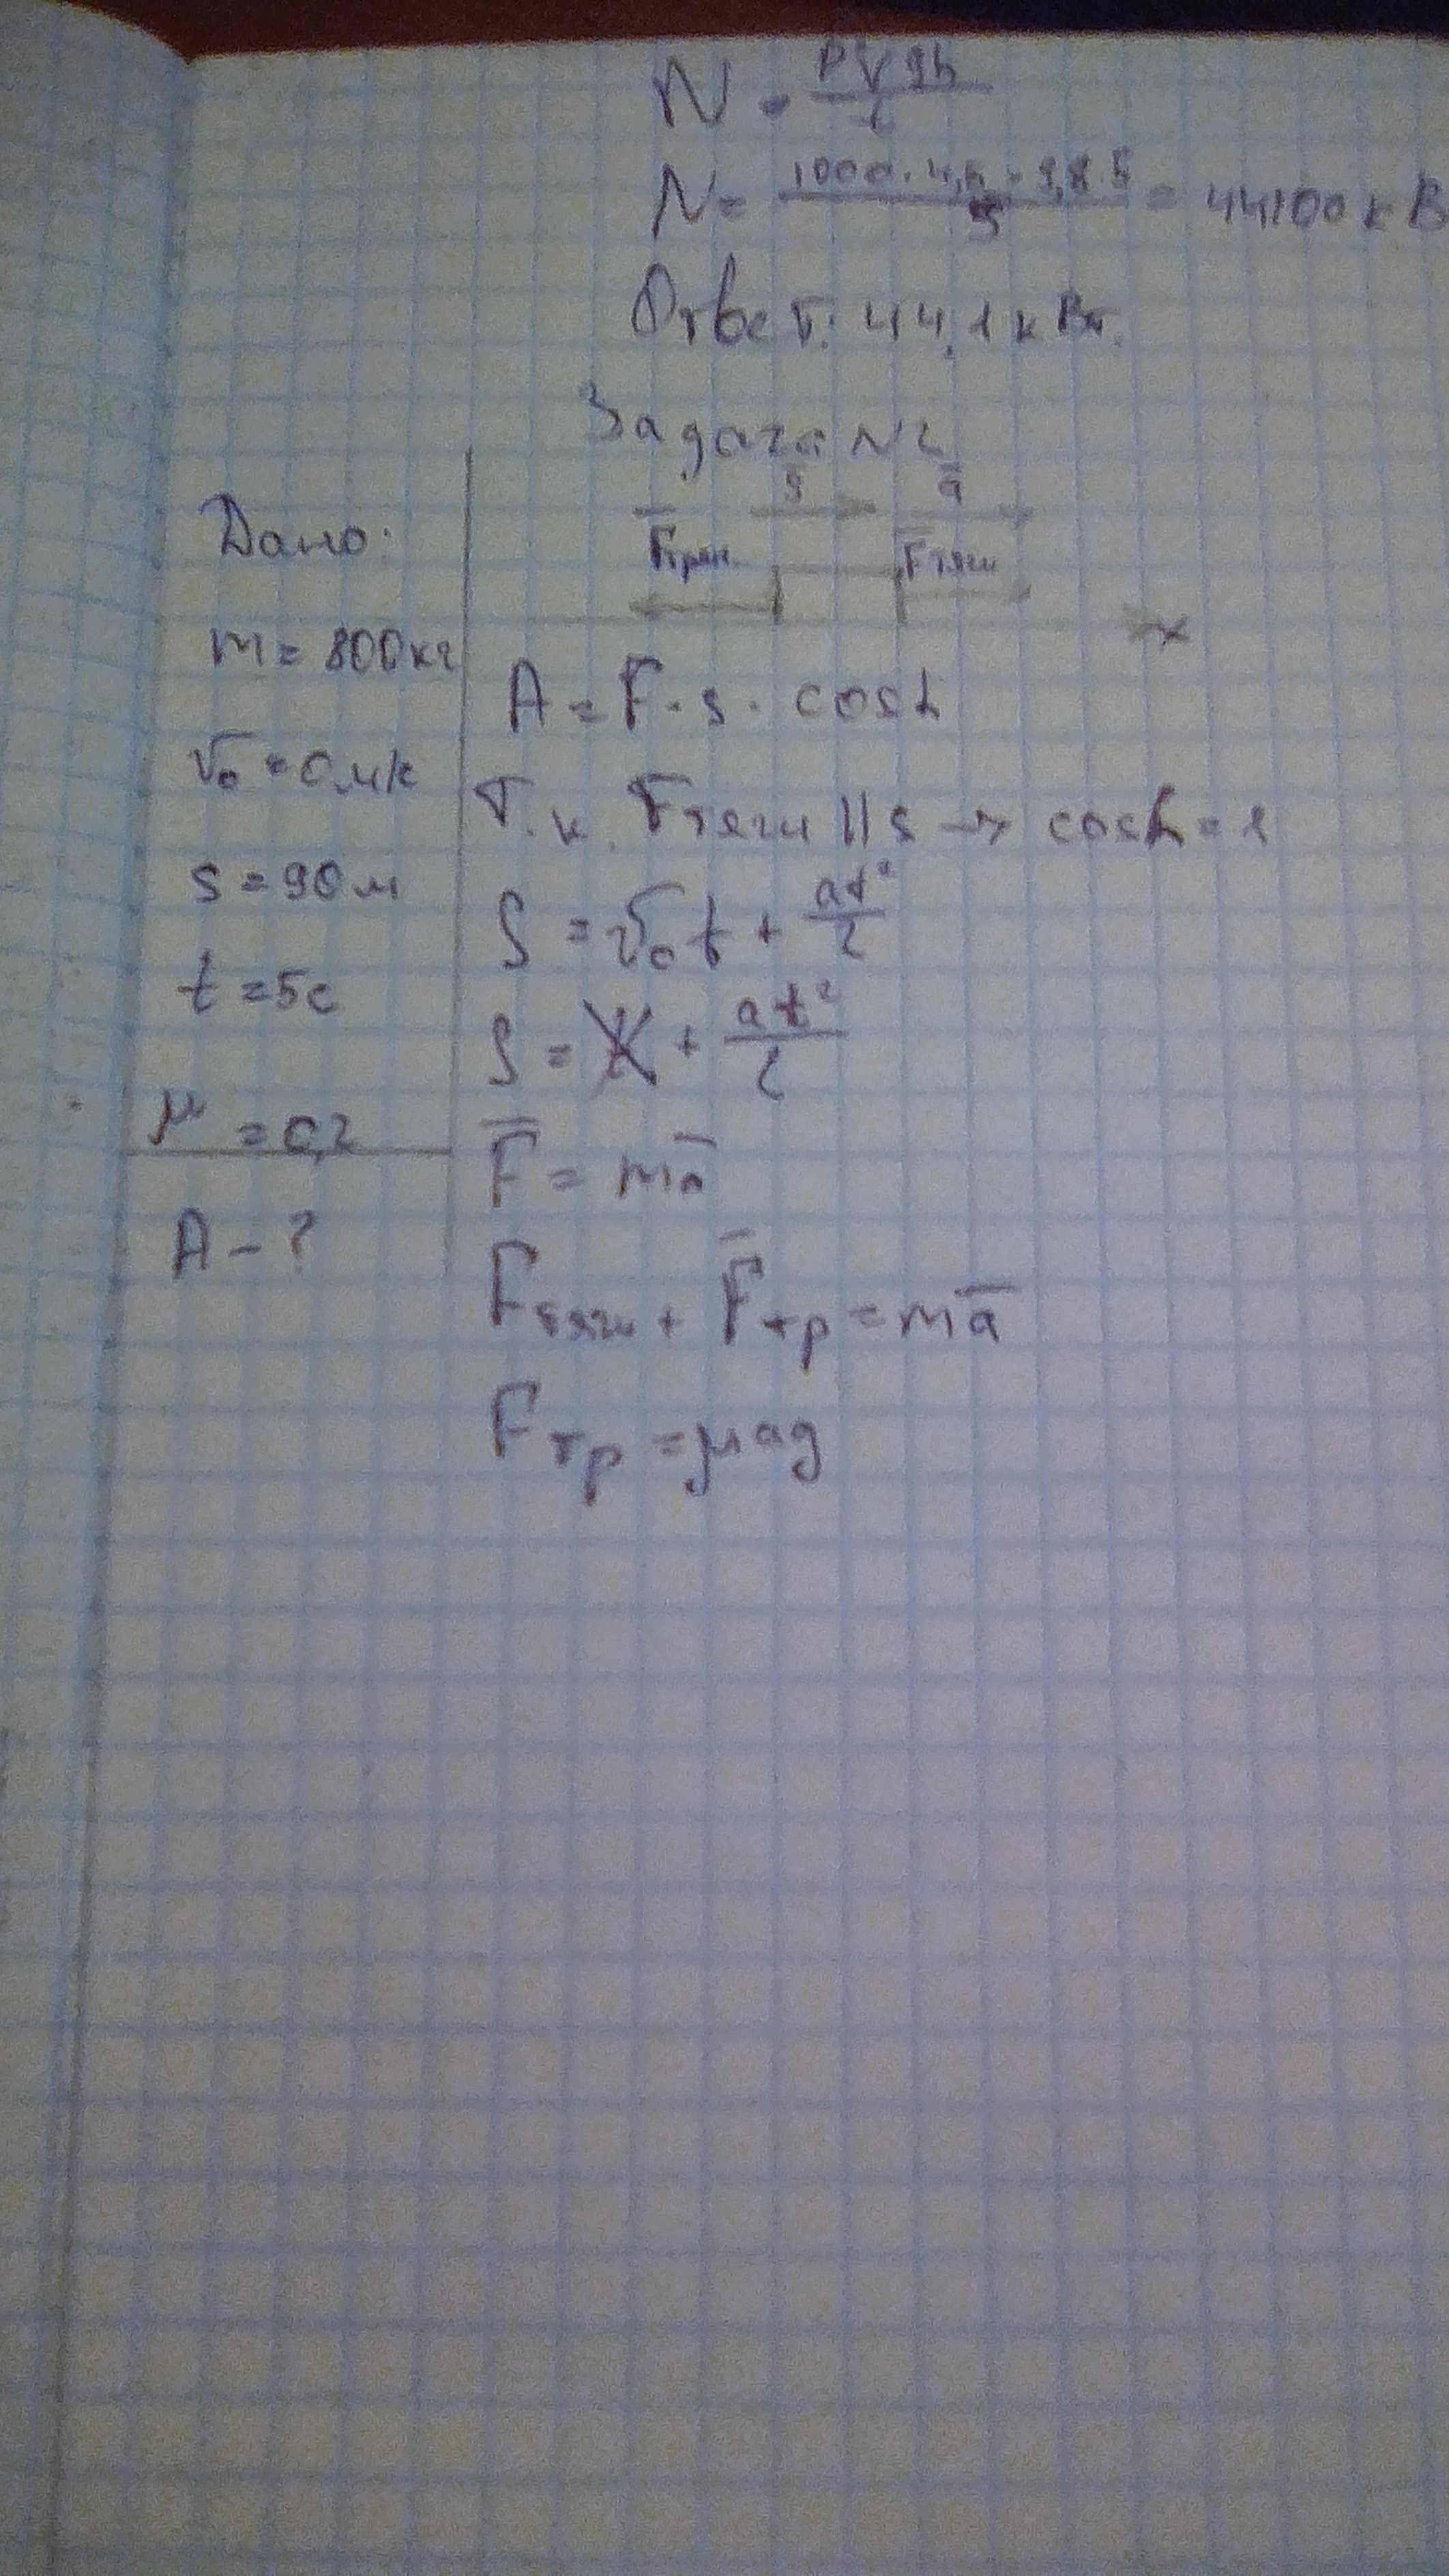 N = ρVgh/t
N = 1000·4,5·9,8·5/5 = 44100 кВ
Ответ: 44,1 кВт.
Задача №2
s̄ ā
F̄трен. F̄тяги
x
Дано:
m = 800кг
v₀ = 0 м/с
s = 90м
t = 5с
μ = 0,2
A - ?
A = F·s·cosL
Т.к. Fтяги || s → cosL = 1
S = v₀t + at²/2
S = + at²/2
F̄ = mā
Fтяги + F̄тр = mā
Fтр = μag